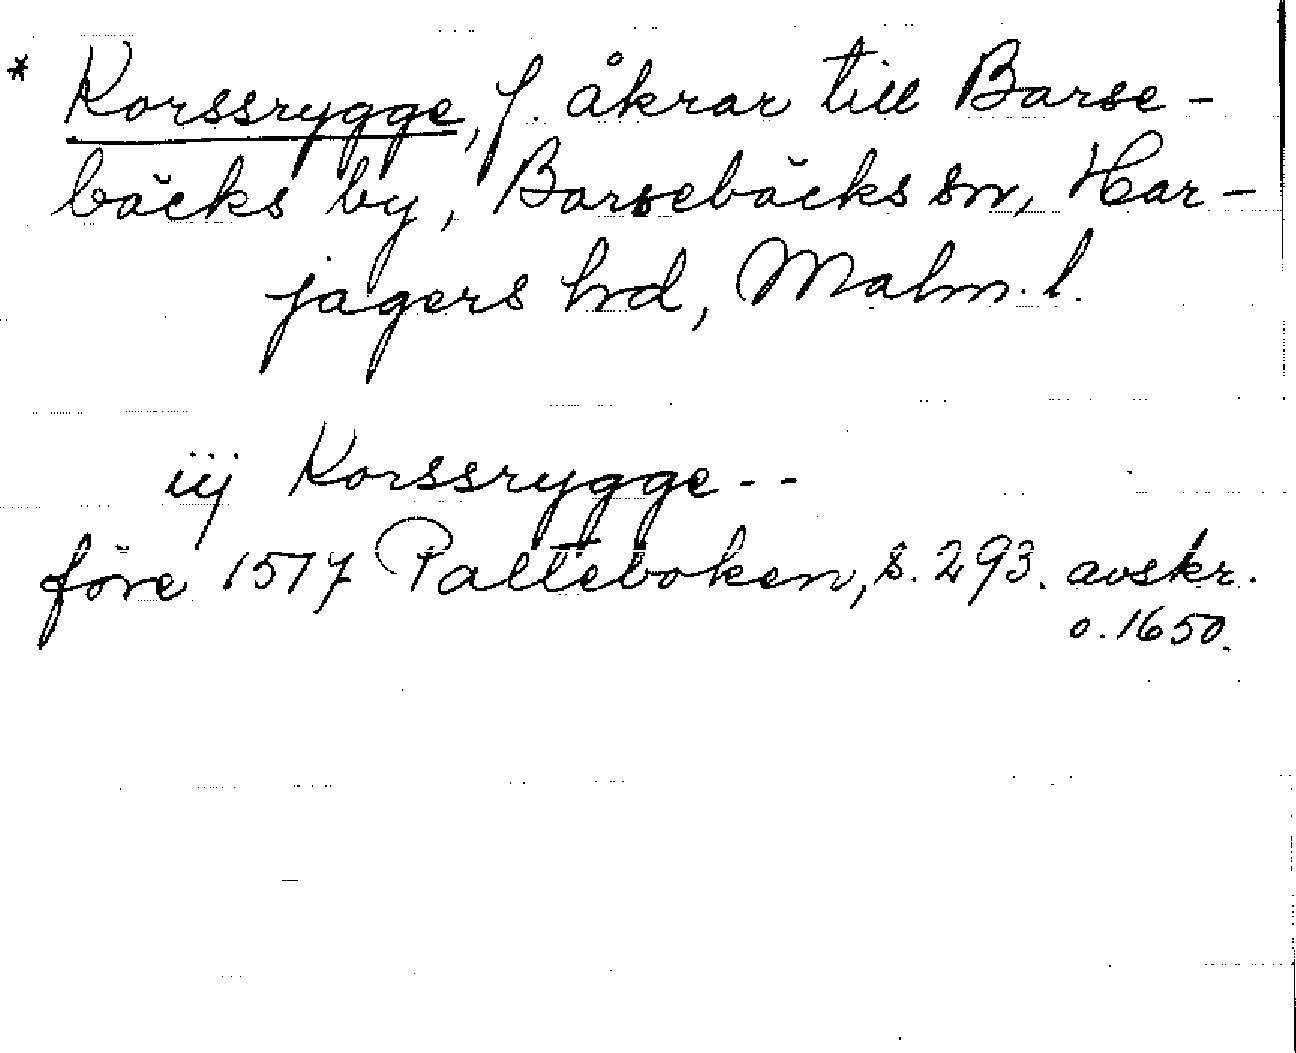 * Korssrygge, f. åkrar till Barse-
bäcks by, Barsebäcks sn, Har-
jagers hd, Malm. l.
iij Korssrygge--
före 1517 Palteboken, s. 293. avskr.
o. 1650.